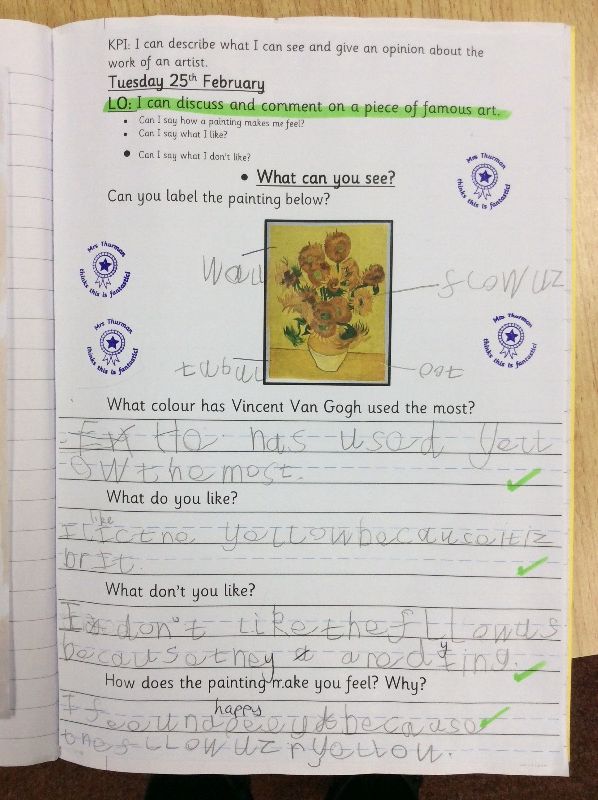 KPI: I can describe what I can see and give an opinion about the
work of an artist.
Tuesday 25th February
LO: I can discuss and comment on a piece of famous art.
• Can I say how a painting makes me feel?
• Can I say what I like?
• Can I say what I don't like?
• What can you see?
Mrs Thurman
thinks this is fantastic!
Can you label the painting below?
Mrs Thurman
thinks this is fantastic!
Wall
flowuz
Mrs Thurman
thinks this is fantastic!
Mrs Thurman
thinks this is fantastic!
What colour has Vincent Van Gogh used the most?
He has used yell
ow the most.
What do you like?
I like the yellow because it iz
brit.
What don't you like?
I don't like the fllowus
because they are dying.
How does the painting make you feel? Why?
happy because
the fllowuz r yellow.